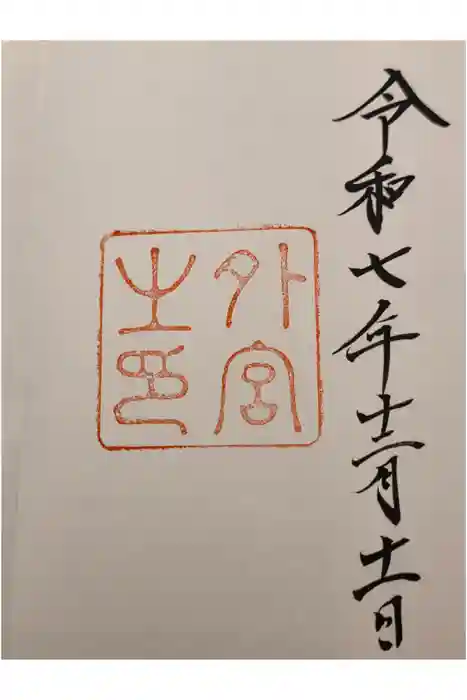 令和七年十二月十一日
外宮
之印